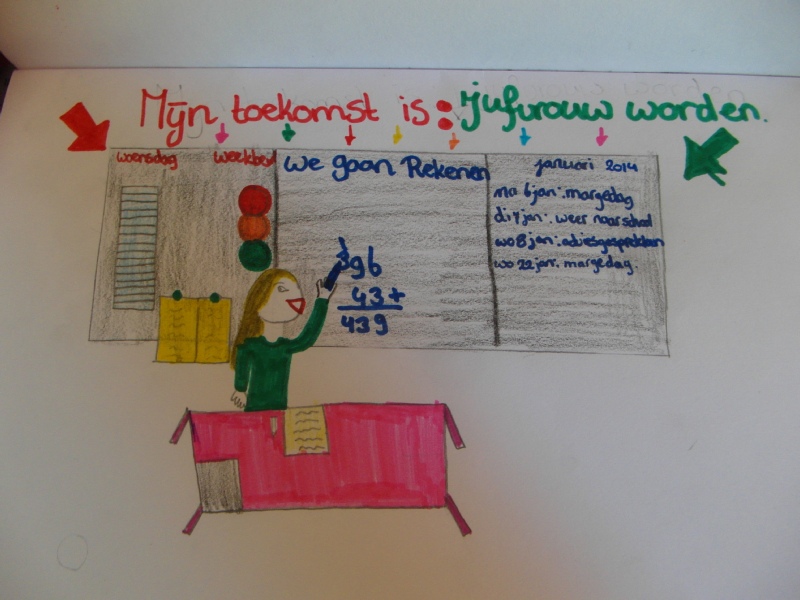 Mijn toekomst is: Jufvrouw worden.
woensdag
We gaan Rekenen
1
396
43+
439
januari 2014
ma 6 jan: margedag
di 7 jan: weer naar school
wo 8 jan: adviesgesprekken
wo 22 jan: margedag.